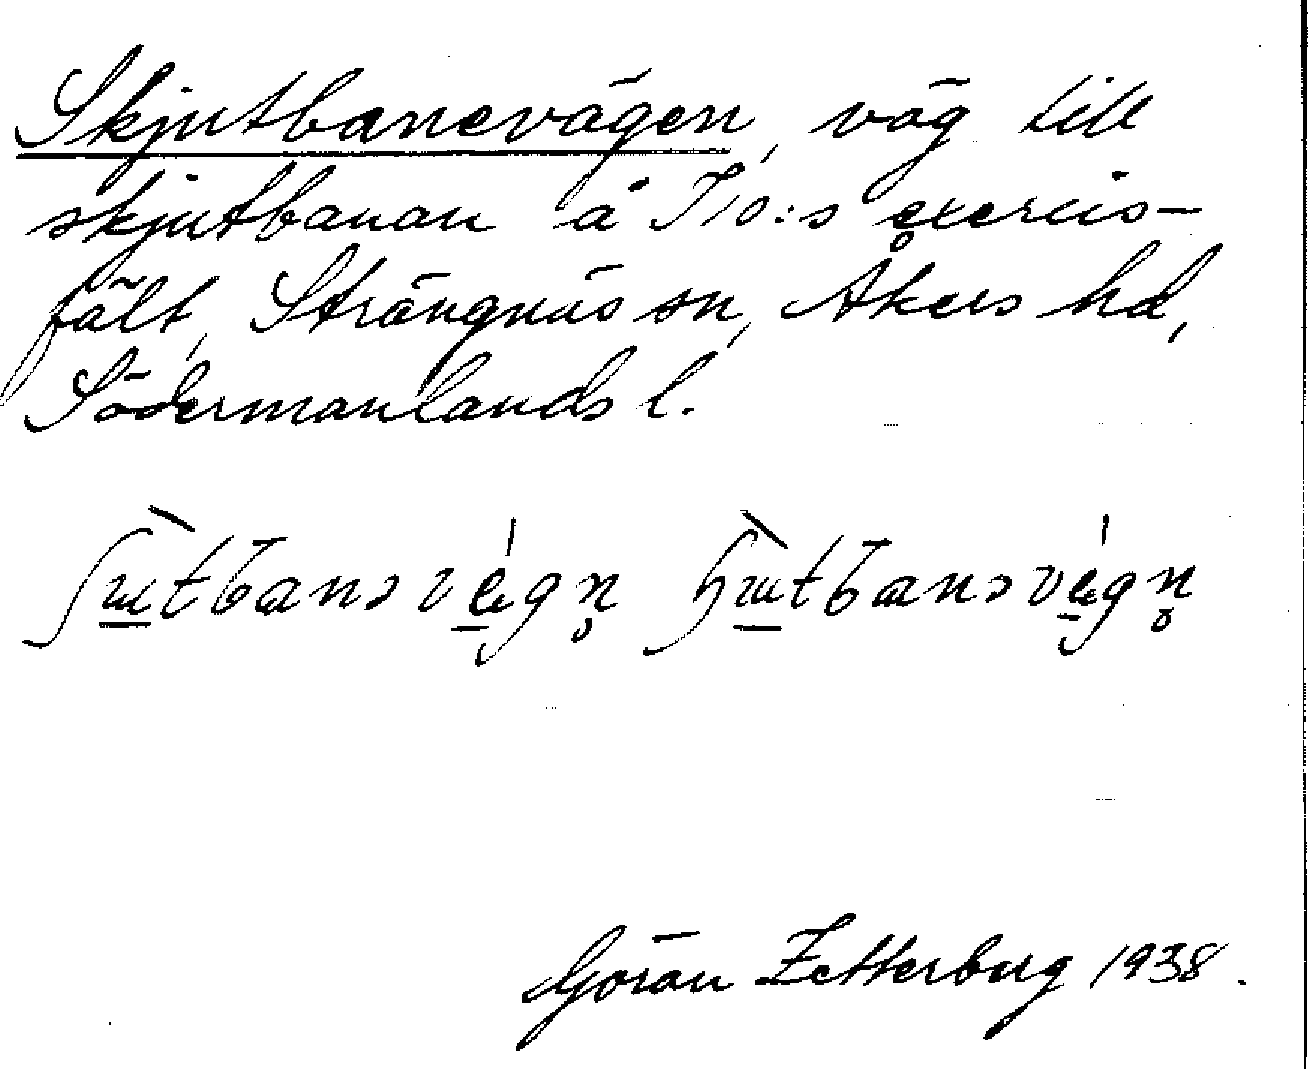 Skjutbanevägen, väg till
skjutbanan å I10:s exercis-
fält, Strängnäs sn, Åkers hd,
Södermanlands l.
Göran Zetterberg 1938.